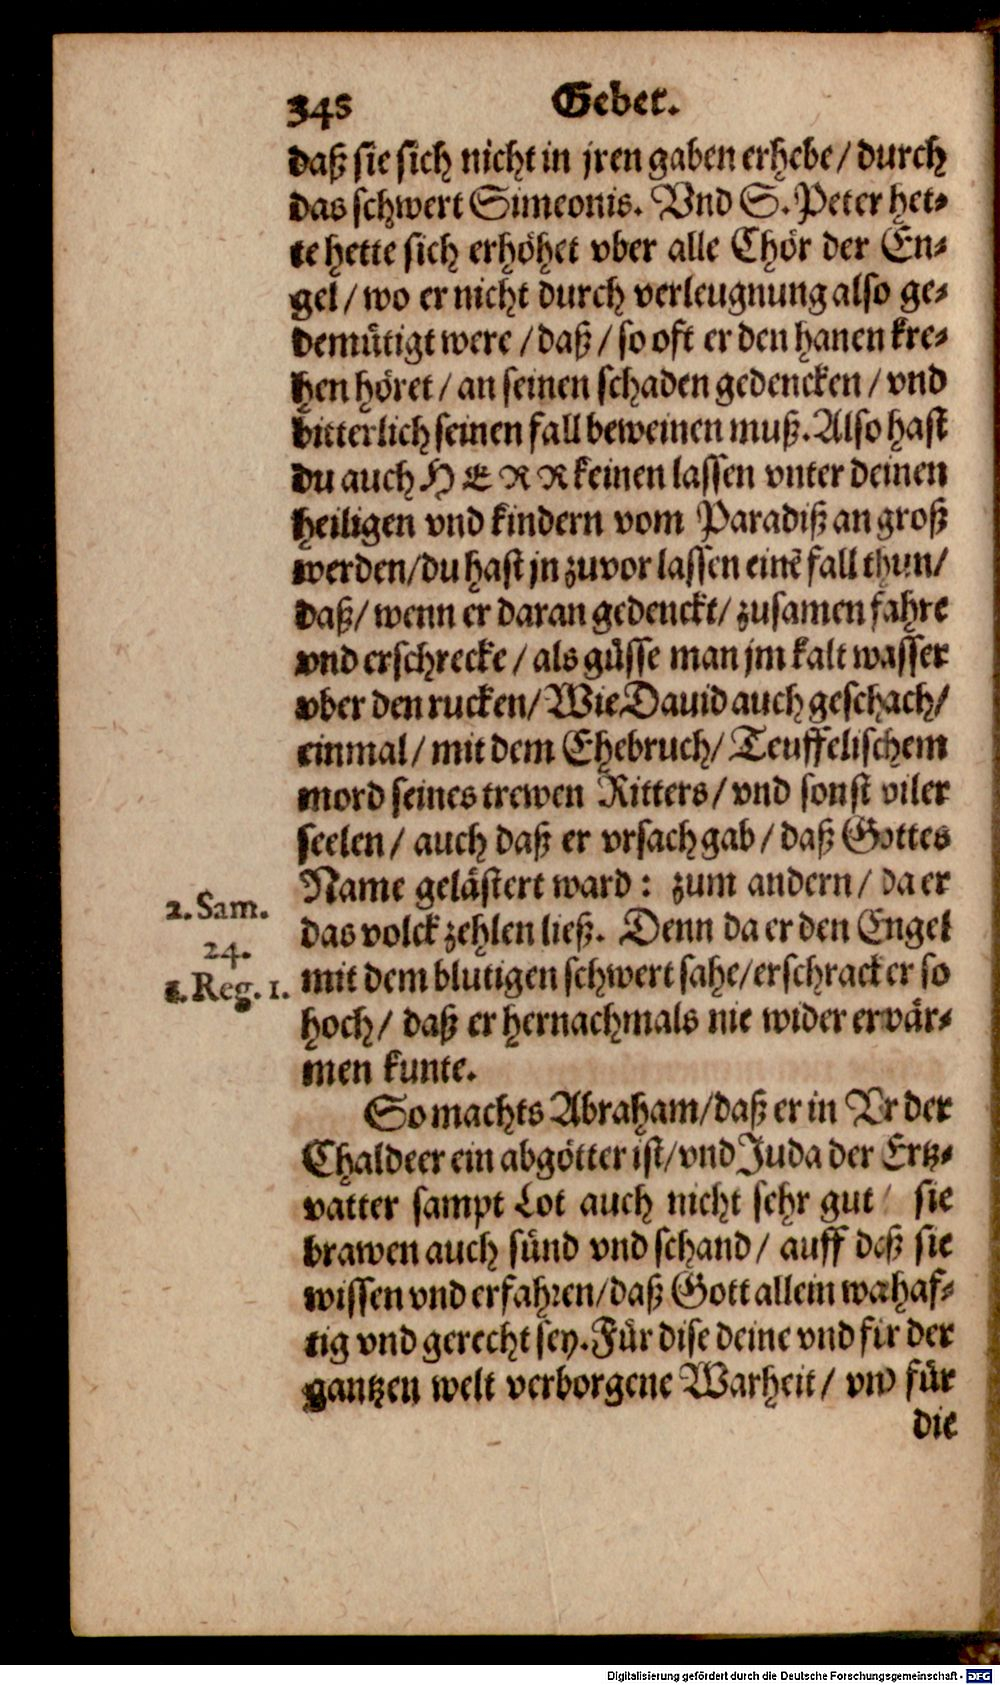 348 Gebet.
daß sie sich nicht in jren gaben erhebe / durch
das schwert Simeonis. Vnd S. Peter het-
te hette sich erhöhet vber alle Chör der En-
gel / wo er nicht durch verleugnung also ge-
demütigt were / daß / so oft er den hanen kre-
hen höret / an seinen schaden gedencken / vnd
bitterlich seinen fall beweinen muß. Also hast
du auch HERR keinen lassen vnter deinen
heiligen vnd kindern vom Paradiß an groß
werden / du hast jn zuvor lassen einẽ fall thun /
daß / wenn er daran gedenckt / zusamen fahre
vnd erschrecke / als güsse man jm kalt wasser
vber den rucken / Wie Dauid auch geschach /
einmal / mit dem Ehebruch / Teuffelischem
mord seines trewen Ritters / vnd sonst viler
seelen / auch daß er vrsach gab / daß Gottes
Name gelästert ward : zum andern / da er
das volck zehlen ließ. Denn da er den Engel
mit dem blutigen schwert sahe / erschrack er so
hoch / daß er hernachmals nie wider erwär-
men kunte.
2. Sam.
24.
1. Reg. 1.
So machts Abraham / daß er in Vr der
Chaldeer ein abgötter ist / vnd Juda der Ertz-
vatter sampt Lot auch nicht sehr gut / sie
brawen auch sünd vnd schand / auff daß sie
wissen vnd erfahren / daß Gott allein wahaf-
tig vnd gerecht sey. Für dise deine vnd fir der
gantzen welt verborgene Warheit / vnd für
die
Digitalisierung gefördert durch die Deutsche Forschungsgemeinschaft - DFG